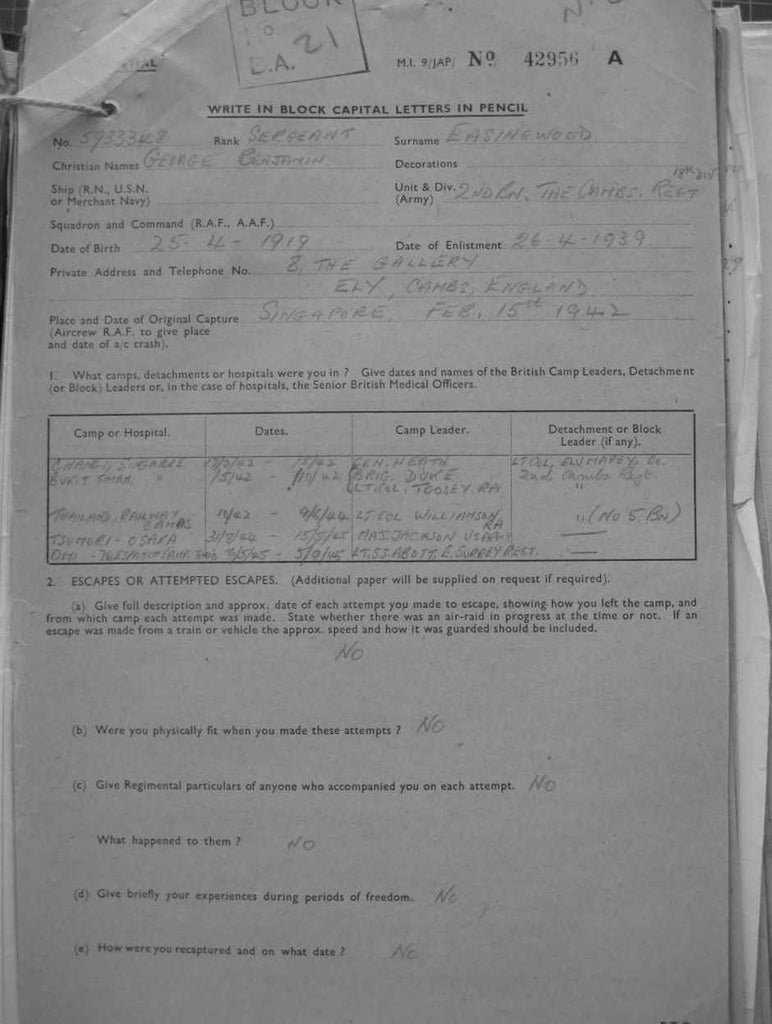 BLOCK
D.A. 21
M.I. 9/JAP/ No 42956 A
WRITE IN BLOCK CAPITAL LETTERS IN PENCIL
No. 5933348 Rank SERGEANT Surname EASINGWOOD
Christian Names GEORGE BENJAMIN Decorations
18th DIV
Ship (R.N., U.S.N. or Merchant Navy) Unit & Div. (Army) 2ND BN. THE CAMBS. REGT
Squadron and Command (R.A.F., A.A.F.)
Date of Birth 25-4-1919 Date of Enlistment 26-4-1939
Private Address and Telephone No. 8, THE GALLERY
ELY, CAMBS, ENGLAND
Place and Date of Original Capture SINGAPORE, FEB. 15th 1942
(Aircrew R.A.F. to give place
and date of a/c crash).
1. What camps, detachments or hospitals were you in ? Give dates and names of the British Camp Leaders, Detachment
(or Block) Leaders or, in the case of hospitals, the Senior British Medical Officers.
Camp or Hospital. Dates. Camp Leader. Detachment or Block Leader (if any).
CHANGI, 17/2/42 - /5/42 GEN. HEATH LT COL,
BUKIT TIMAH, " /5/42 - /10/42 BRIG. DUKE 2nd. Cambs Regt.
LT. COL. TOOSEY. RA "
THAILAND, RAILWAY CAMPS 11/42 - 9/6/44 LT COL WILLIAMSON RA " (No 5 BN)
TSUMORI - OSAKA - 15/5/45 MAJ. JACKSON US ARMY
OMI - - 5/9/45 LT. S.S. ABOTT. E. SURREY REGT.
2. ESCAPES OR ATTEMPTED ESCAPES. (Additional paper will be supplied on request if required).
(a) Give full description and approx. date of each attempt you made to escape, showing how you left the camp, and
from which camp each attempt was made. State whether there was an air-raid in progress at the time or not. If an
escape was made from a train or vehicle the approx. speed and how it was guarded should be included.
NO
(b) Were you physically fit when you made these attempts ? NO
(c) Give Regimental particulars of anyone who accompanied you on each attempt. NO
What happened to them ? NO
(d) Give briefly your experiences during periods of freedom. NO
(e) How were you recaptured and on what date ? NO